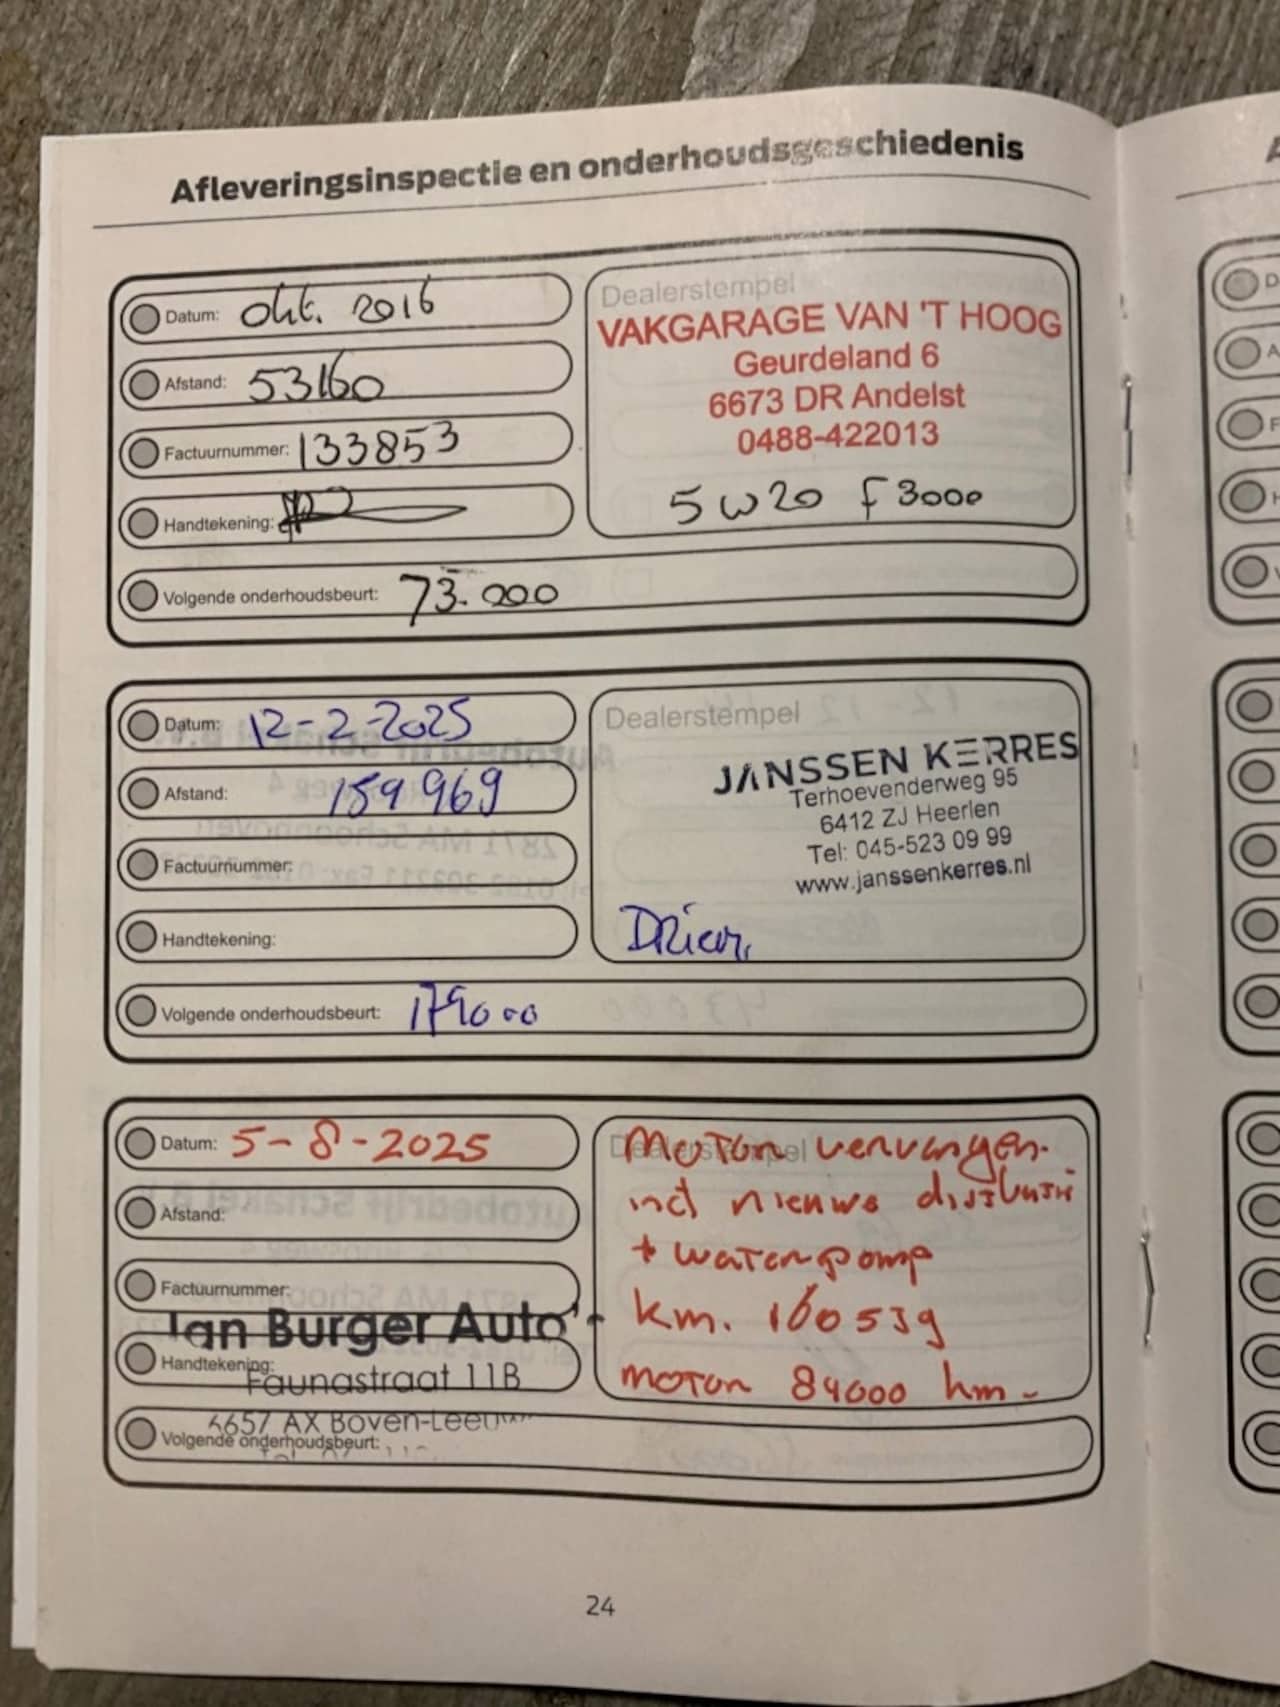 Afleveringsinspectie en onderhoudsgeschiedenis
Datum: okt. 2016
Afstand: 53160
Factuurnummer: 133853
Handtekening:
Volgende onderhoudsbeurt: 73.000
Dealerstempel
VAKGARAGE VAN 'T HOOG
Geurdeland 6
6673 DR Andelst
0488-422013
5W20 F3000
Datum: 12-2-2025
Afstand: 159969
Factuurnummer:
Handtekening:
Volgende onderhoudsbeurt: 179000
Dealerstempel
JANSSEN KERRES
Terhoevenderweg 95
6412 ZJ Heerlen
Tel: 045-523 09 99
www.janssenkerres.nl
Datum: 5-8-2025
Afstand:
Factuurnummer:
Jan Burger Auto's
Handtekening:
Faunastraat 11B
6657 AX Boven-Leeuw
Volgende onderhoudsbeurt:
Dealerstempel
Motor vervangen.
incl nieuwe distributie
+ waterpomp
km. 160539
motor 84000 km-
24